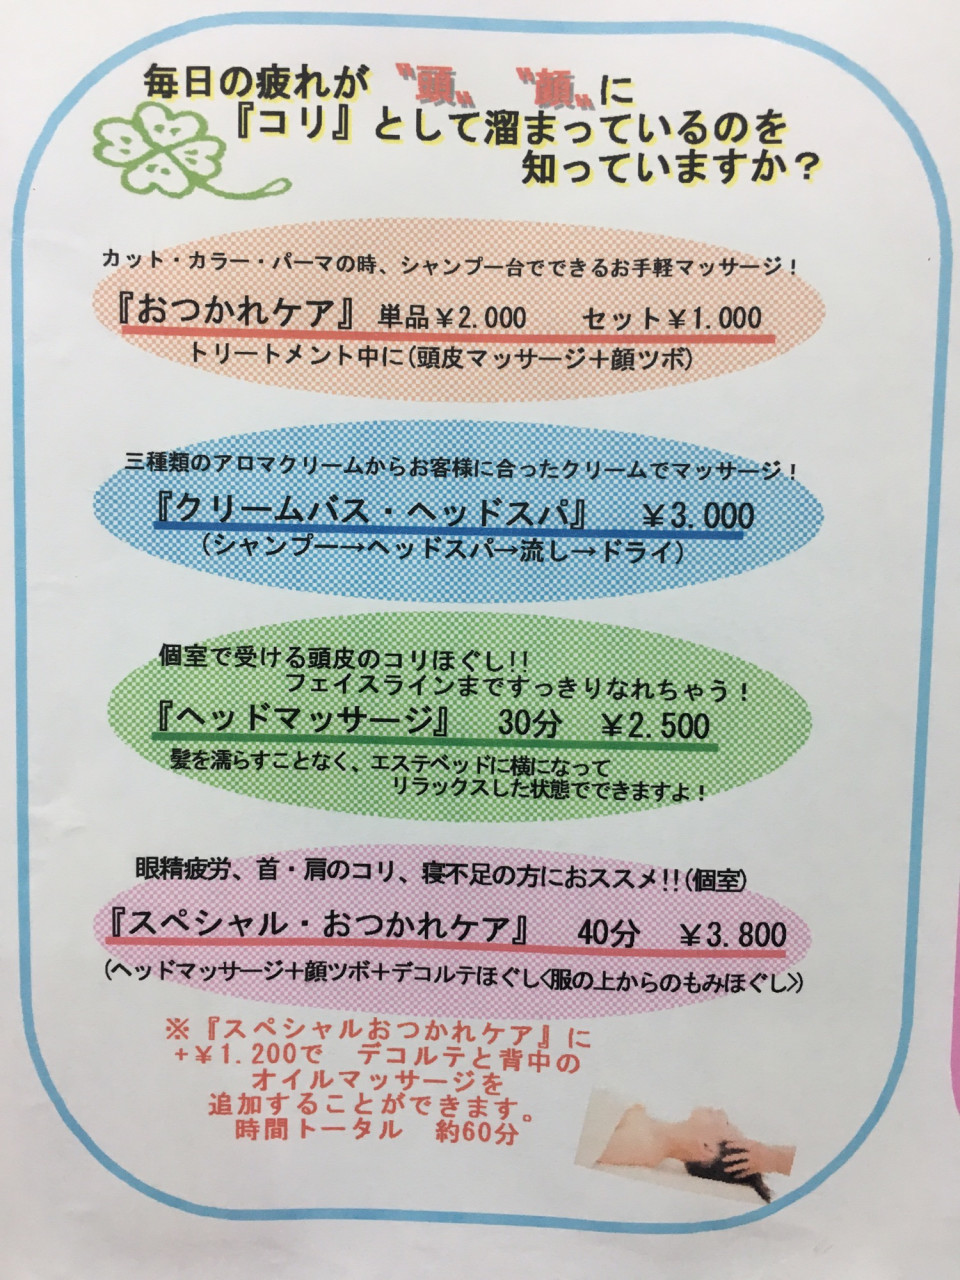 毎日の疲れが 〝頭〟 〝顔〟に
『コリ』として溜まっているのを
知っていますか？
カット・カラー・パーマの時、シャンプー台でできるお手軽マッサージ！
『おつかれケア』 単品￥2.000 セット￥1.000
トリートメント中に(頭皮マッサージ＋顔ツボ)
三種類のアロマクリームからお客様に合ったクリームでマッサージ！
『クリームバス・ヘッドスパ』 ￥3.000
(シャンプー→ヘッドスパ→流し→ドライ)
個室で受ける頭皮のコリほぐし!!
フェイスラインまですっきりなれちゃう！
『ヘッドマッサージ』 30分 ￥2.500
髪を濡らすことなく、エステベッドに横になって
リラックスした状態でできますよ！
眼精疲労、首・肩のコリ、寝不足の方におススメ!!(個室)
『スペシャル・おつかれケア』 40分 ￥3.800
(ヘッドマッサージ＋顔ツボ＋デコルテほぐし<服の上からのもみほぐし>)
※『スペシャルおつかれケア』に
+￥1.200で デコルテと背中の
オイルマッサージを
追加することができます。
時間トータル 約60分